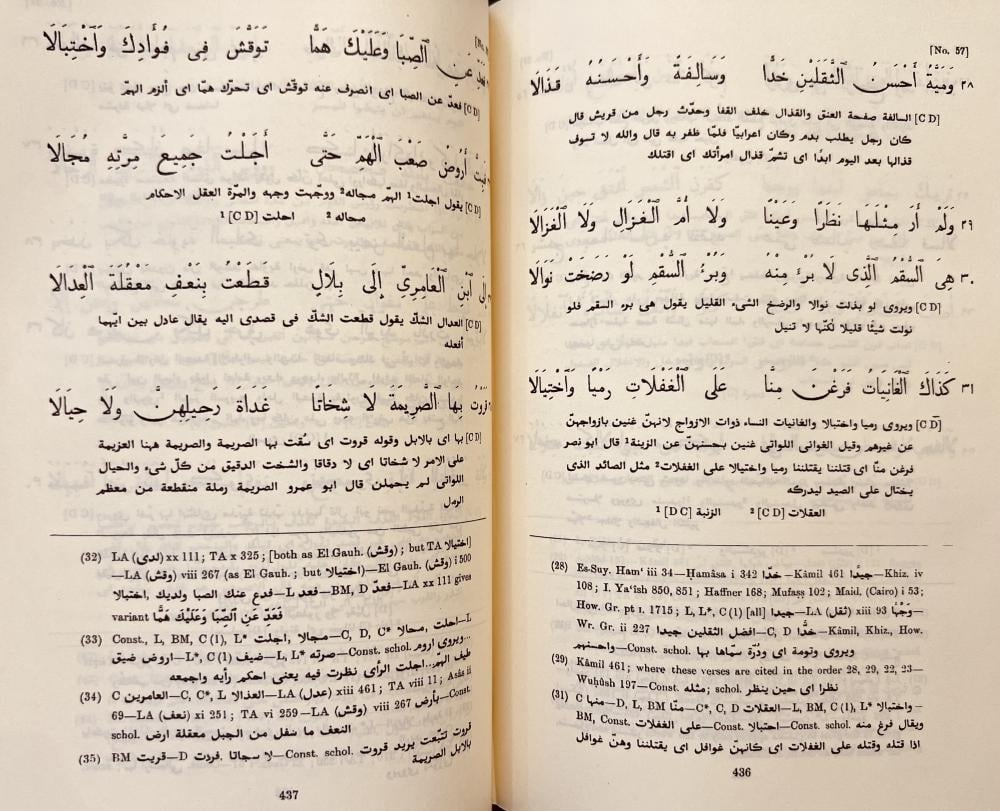 [No. 57]
٢٨ وَمَيَّةُ أَحْسَنُ ٱلثَّقَلَيْنِ خَدًّا وَسَالِفَةً وَأَحْسَنُهُ قَذَالَا
[C D] السالفة صفحة العنق والقذال خلف القفا وحدّث رجل من قريش قال
كان رجل يطلب بدم وكان اعرابيًا فلمّا ظفر به قال والله لا تسوف
قذالها بعد اليوم ابدًا اى تشمّ قذال امرأتك اى اقتلك
٢٩ وَلَمْ أَرَ مِثْلَهَا نَظَرًا وَعَيْنًا وَلَا أُمَّ ٱلْغَزَالِ وَلَا ٱلْغَزَالَا
٣٠ هِىَ ٱلسُّقْمُ ٱلَّذِى لَا بُرْءَ مِنْهُ وَبُرْءُ ٱلسُّقْمِ لَوْ رَضَخَتْ نَوَالَا
[C D] ويروى لو بذلت نوالا والرضخ الشىء القليل يقول هى برء السقم فلو
نولت شيئًا قليلا لكنّها لا تنيل
٣١ كَذَاكَ ٱلْغَانِيَاتُ فَرَغْنَ مِنَّا عَلَى ٱلْغَفَلَاتِ رَمْيًا وَٱخْتِيَالَا
[C D] ويروى رميا واختبالا والغانيات النساء ذوات الازواج لانهنّ غنين بازواجهنّ
عن غيرهم وقيل الغوانى اللواتى غنين بحسنهنّ عن الزينة¹ قال ابو نصر
فرغن منّا اى قتلننا يقتلننا رميا واختيالا على الغفلات² مثل الصائد الذى
يختال على الصيد ليدركه
¹ [D C] الزنبة ² [C D] العقلات
(28) Es-Suy. Hamʿ iii 34—Ḥamâsa i 342 خدّا—Kâmil 461 جيدًا—Khiz. iv
108; I. Yaʿîsh 850, 851; Haffner 168; Mufaṣṣ 102; Maid. (Cairo) i 53;
How. Gr. pt I. 1715; L, L*, C (1) [all] جيدا—LA (ثقل) xiii 93 وَجْهًا—
Wr. Gr. ii 227 افضل الثقلين جيدا—C, D خدًّا—Kâmil, Khiz., How.
واحسنهم—Const. schol. ويروى وتومة اى ودُرّة سمّاها بها
(29) Kâmil 461; where these verses are cited in the order 28, 29, 22, 23—
Wuḥûsh 197—Const. مثله; schol. نظرا اى حين ينظر
(31) C منها—D, L, BM منّا—C*, C, D العقلات—L, BM, C (1), L* واختبالا—
BM, Const. على الغفلات—Const. احتبالا—Const. schol. ويقال فرغ منه
اذا قتله وقتله على الغفلات اى كانهنّ غوافل اى يقتلننا وهنّ غوافل
436
عَنِ ٱلصِّبَا وَعَلَيْكَ هَمًّا تَوَقَّشَ فِى فُوَادِكَ وَٱحْتِبَالَا
[C D] فعدّ عن الصبا اى انصرف عنه توقش اى تحرّك همّا اى الزم الهمّ
أَرُوضُ صَعْبَ ٱلْهَمِّ حَتَّى أَجَلْتُ جَمِيعَ مِرَّتِهِ مُجَالَا
[C D] يقول اجلت¹ الهمّ مجاله² ووجّهت وجهه والمرّة العقل الاحكام
¹ [C D] احلت ² محاله
ٱبْنِ ٱلْعَامِرِىِّ إِلَى بِلَالٍ قَطَعْتُ بِنَعْفِ مَعْقُلَةَ ٱلْعِدَالَا
[C D] العدال الشكّ يقول قطعت الشكّ فى قصدى اليه يقال عادل بين ايّهما
أفعله
بِهَا ٱلصَّرِيمَةَ لَا شِخَاتًا غَدَاةَ رَحِيلِهِنَّ وَلَا حِيَالَا
[C D] بها اى بالابل وقوله قروت اى سُقت بها الصريمة والصريمة ههنا العزيمة
على الامر لا شخاتا اى لا دقاقا والشخت الدقيق من كلّ شىء والحيال
اللواتى لم يحملن قال ابو عمرو الصريمة رملة منقطعة من معظم
الرمل
(32) LA (لدى) xx 111; TA x 325; [both as El Gauh. (وقش); but TA اختيالا]
—LA (وقش) viii 267 (as El Gauh.; but اختيالا)—El Gauh. (وقش) i 500
فدع عنك الصبا ولديك, اختيالا—BM, D فعدّ—L فعد—LA xx 111 gives
variant فَعَدِّ عَنِ ٱلصِّبَا وَعَلَيْكَ هَمًّا
(33) Const., L, BM, C (1), L* مجالا, اجلت—C, D, C* احلت, محالا—L
صرته—L, L* ضيف—L*, C (1) اروض ضيق—Const. schol. ويروى اروم...
طيف الهمّ..اجلت الرأى نظرت فيه يعنى احكم رأيه واجمعه
(34) C العامرين—C, C*, L العذالا—LA (عدل) xiii 461; TA viii 11; Asâs ii
69—LA (نعف) xi 251; TA vi 259—LA (وقش) viii 267 بأرض—Const.
schol. النعف ما سفل من الجبل معقلة ارض
(35) BM قريت—D فردت. لا سجاتا—Const. schol. قروت تتبّعت يريد قروت
بالابل الصريمة
437